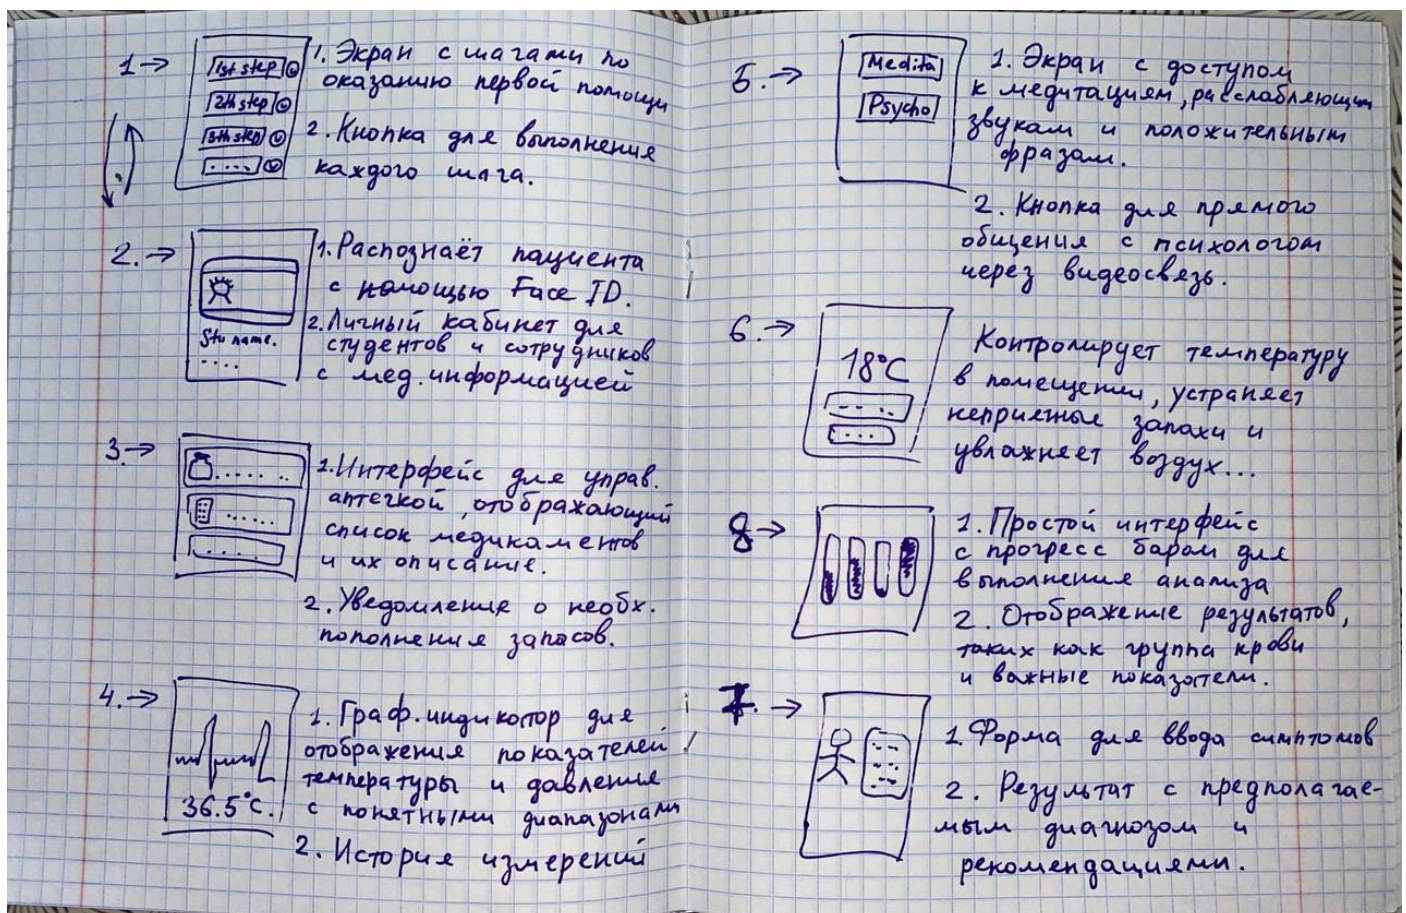 1→
1st step
2th step
3th step
....
1. Экран с шагами по
оказанию первой помощи
2. Кнопка для выполнения
каждого шага.
2.→
Stu name.
....
1. Распознаёт пациента
с помощью Face ID.
2. Личный кабинет для
студентов и сотрудников
с мед. информацией
3.→
1. Интерфейс для управ.
аптечкой, отображающий
список медикаментов
и их описание.
2. Уведомление о необх.
пополнения запасов.
4.→
36.5°C.
1. Граф. индикатор для
отображения показателей
температуры и давления
с понятными диапазонами
2. История измерений
5.→
Medita
Psycho
1. Экран с доступом
к медитациям, расслабляющим
звукам и положительным
фразам.
2. Кнопка для прямого
общения с психологом
через видеосвязь.
6.→
18°C
Контролирует температуру
в помещении, устраняет
неприятные запахи и
увлажняет воздух...
8→
1. Простой интерфейс
с прогресс баром для
выполнения анализа
2. Отображение результатов,
таких как группа крови
и важные показатели.
7.→
1. Форма для ввода симптомов
2. Результат с предполагае-
мым диагнозом и
рекомендациями.